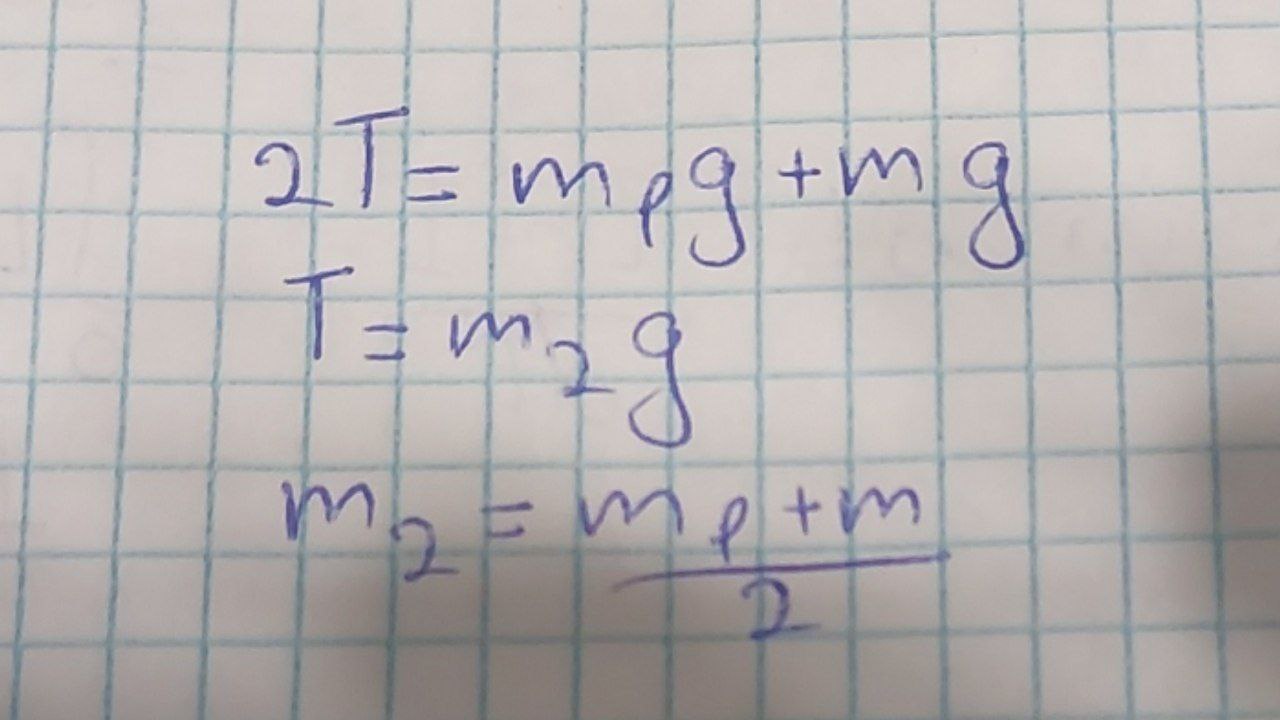 2T = mₚg + mg
T = m₂g
m₂ = (mₚ + m)/2